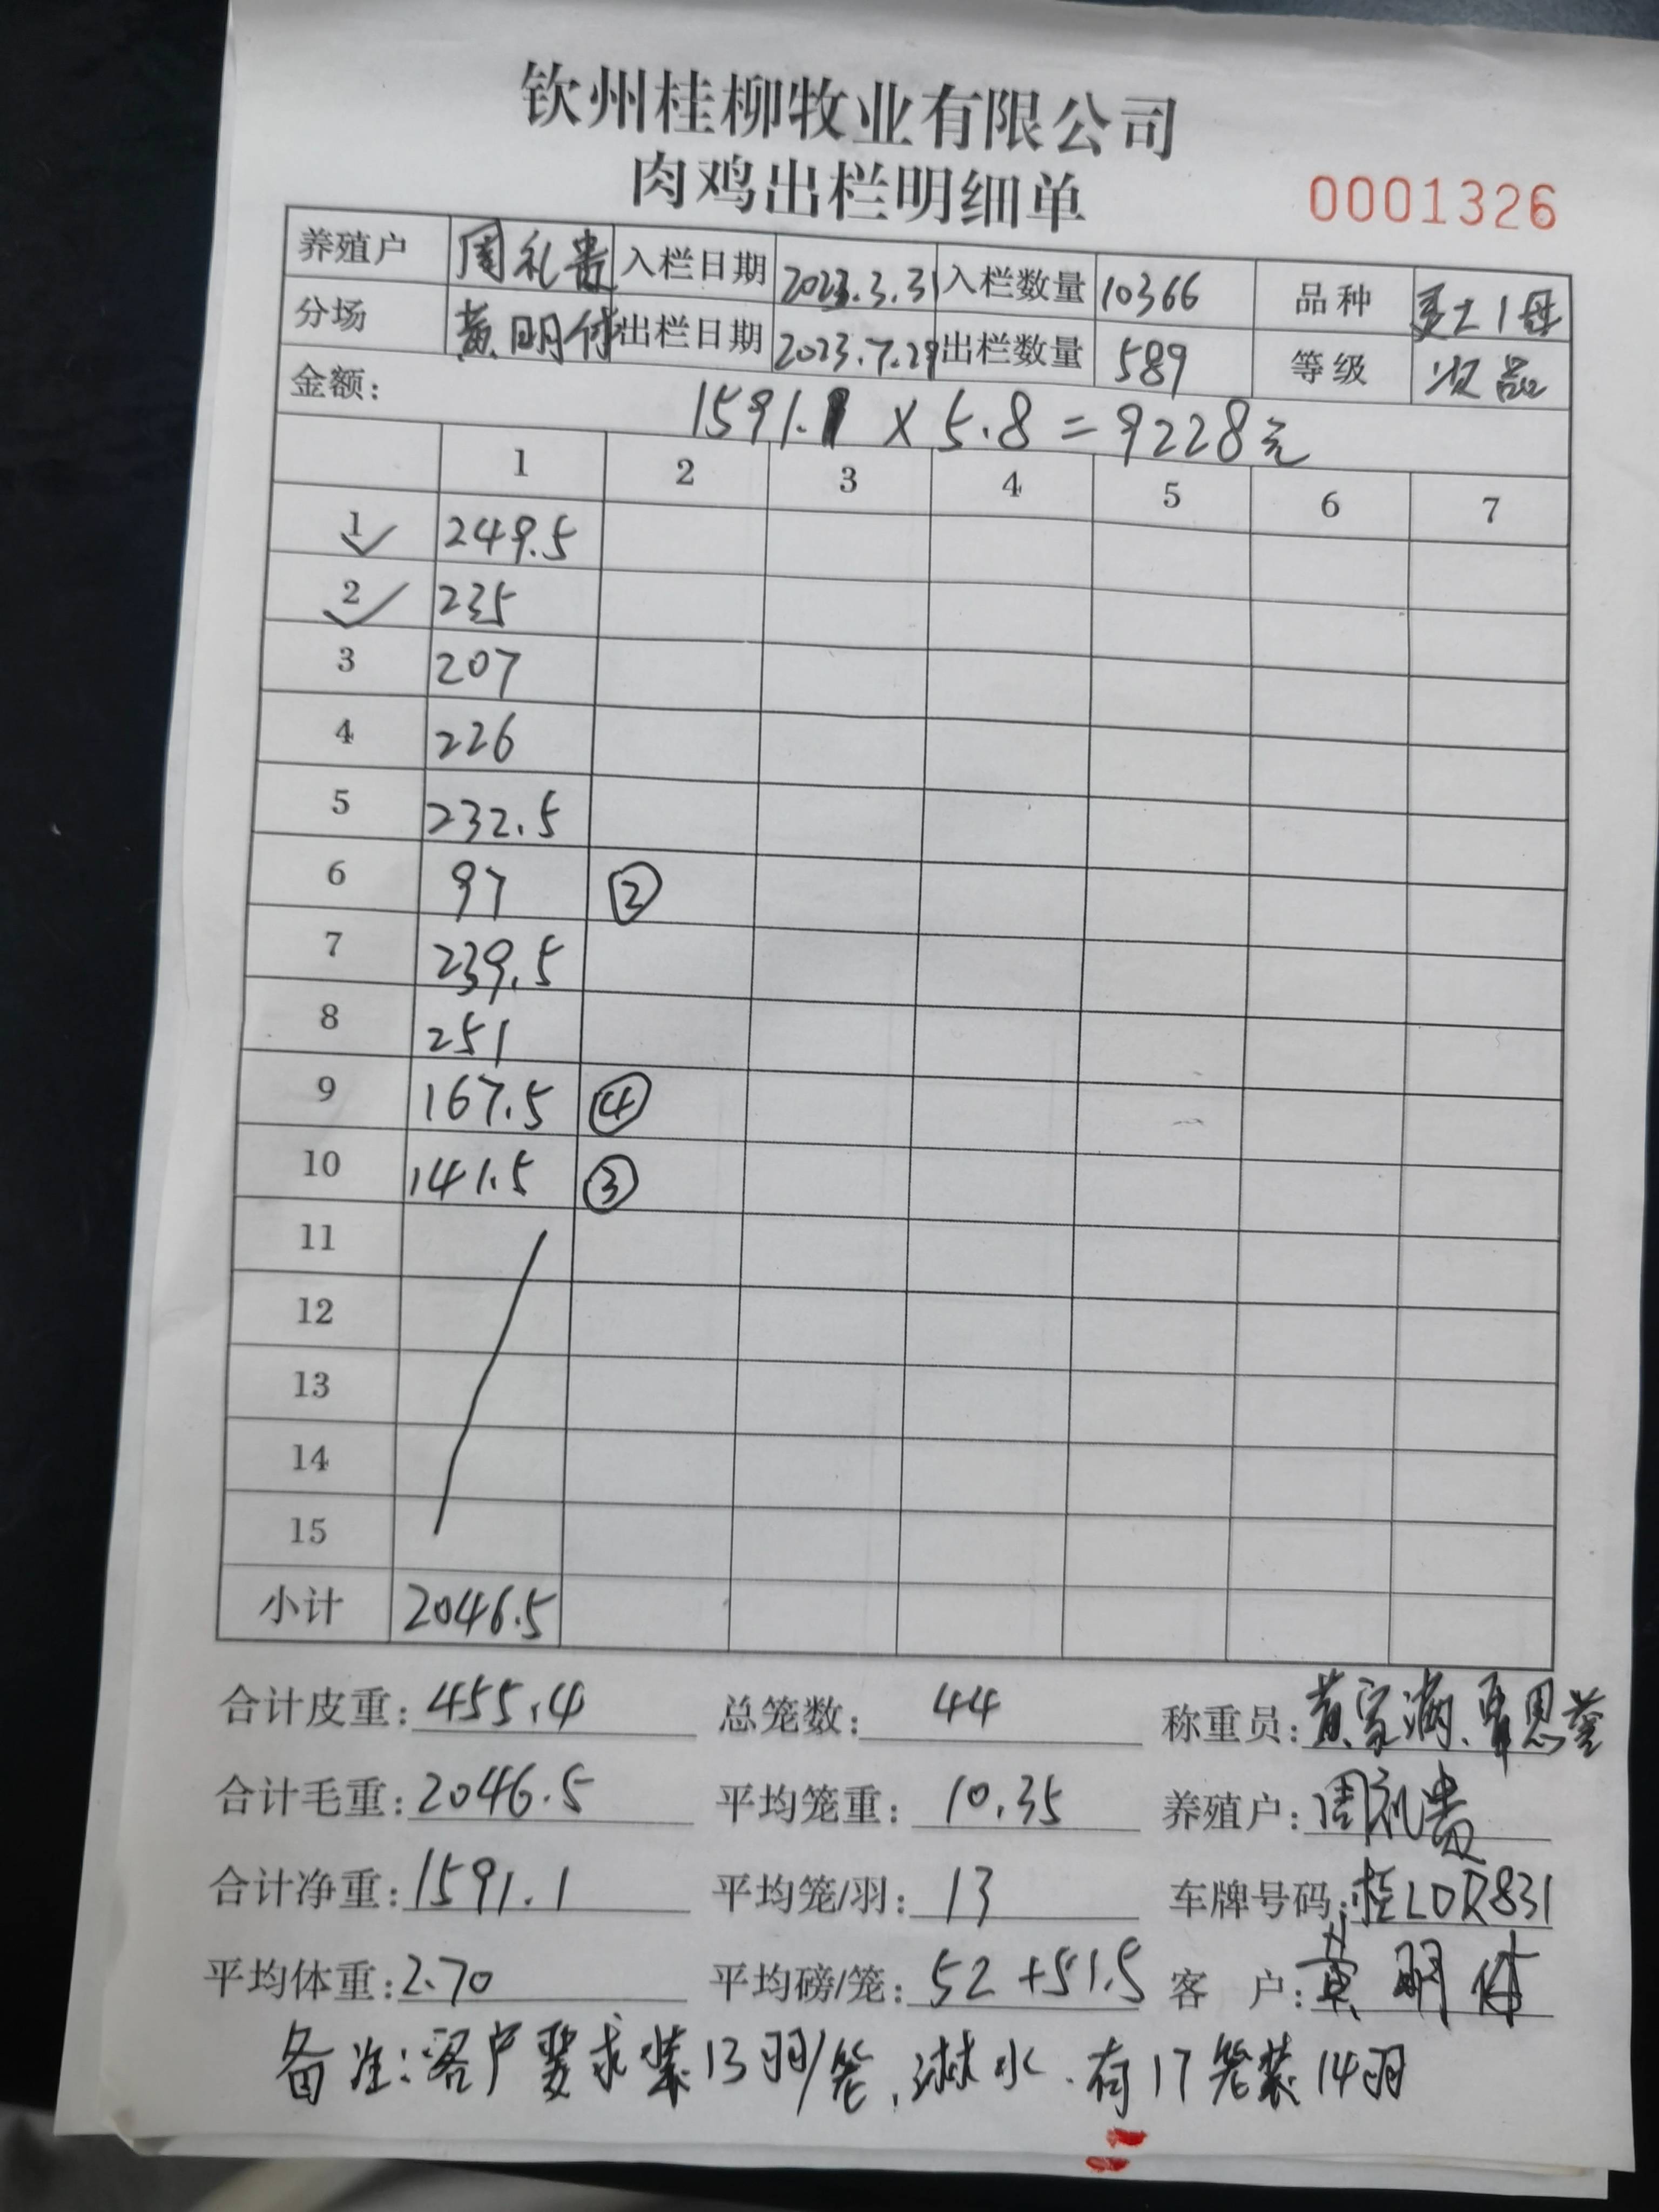 钦州桂柳牧业有限公司
肉鸡出栏明细单
0001326
养殖户 周礼贵 入栏日期 2023.3.31 入栏数量 10366 品种 土1母
分场 黄明伟 出栏日期 2023.7.29 出栏数量 589 等级 次品
金额: 1591.1 × 5.8 = 9228元
1 2 3 4 5 6 7
1 249.5
2 235
3 207
4 226
5 232.5
6 97 ②
7 239.5
8 251
9 167.5 ④
10 141.5 ③
11
12
13
14
15
小计 2046.5
合计皮重: 455.4 总笼数: 44 称重员: 黄家海、覃恩
合计毛重: 2046.5 平均笼重: 10.35 养殖户: 周礼贵
合计净重: 1591.1 平均笼/羽: 13 车牌号码: 桂LDR831
平均体重: 2.70 平均磅/笼: 52+51.5 客户: 黄明伟
备注:客户要求装13羽/笼,淋水.有17笼装14羽